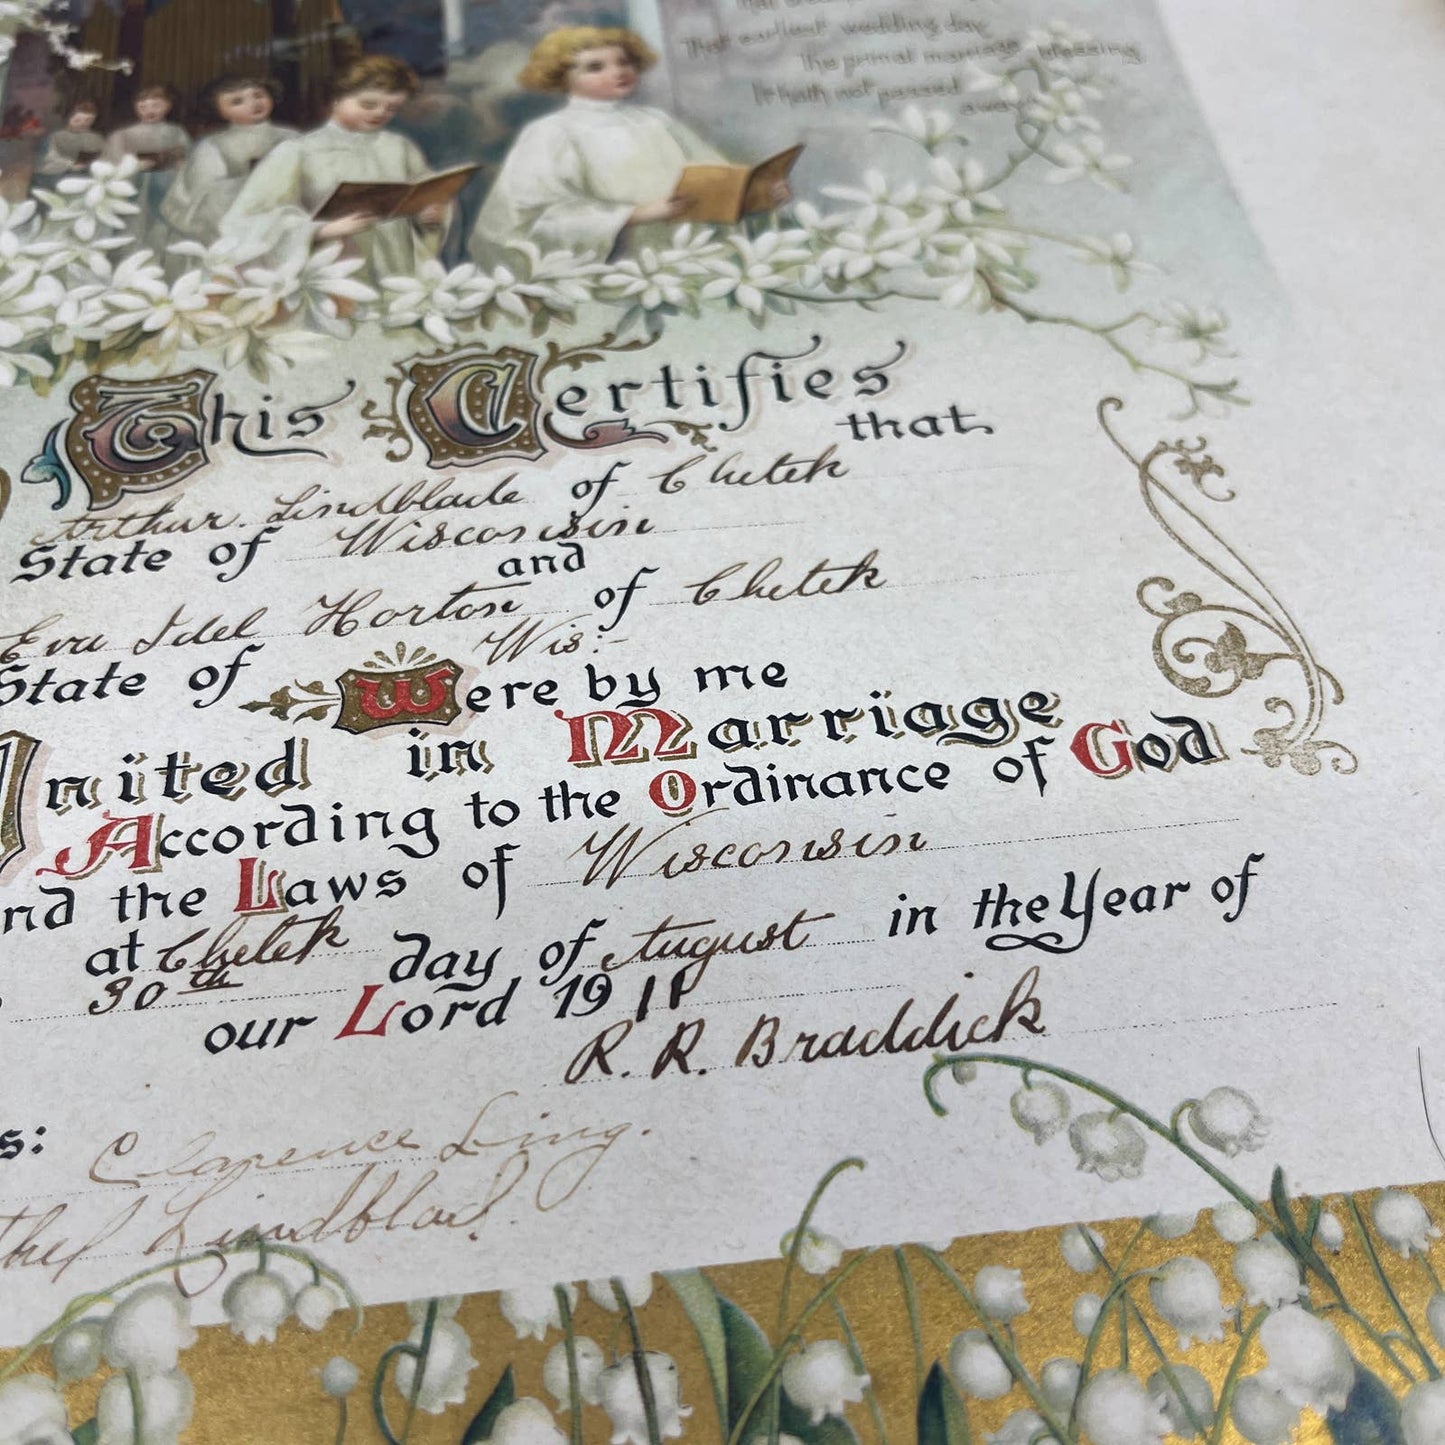 That earliest wedding day
The primal marriage blessing
It hath not passed
away
This Certifies
that
Arthur Lindblade of Chetek
State of Wisconsin
and
Eva Idel Horton of Chetek
State of Wis:-
Were by me
United in Marriage
According to the Ordinance of God
and the Laws of Wisconsin
at Chetek
30th day of August in the Year of
our Lord 1911
R. R. Braddick
s: Clarence Ling.
thel Lindblad.